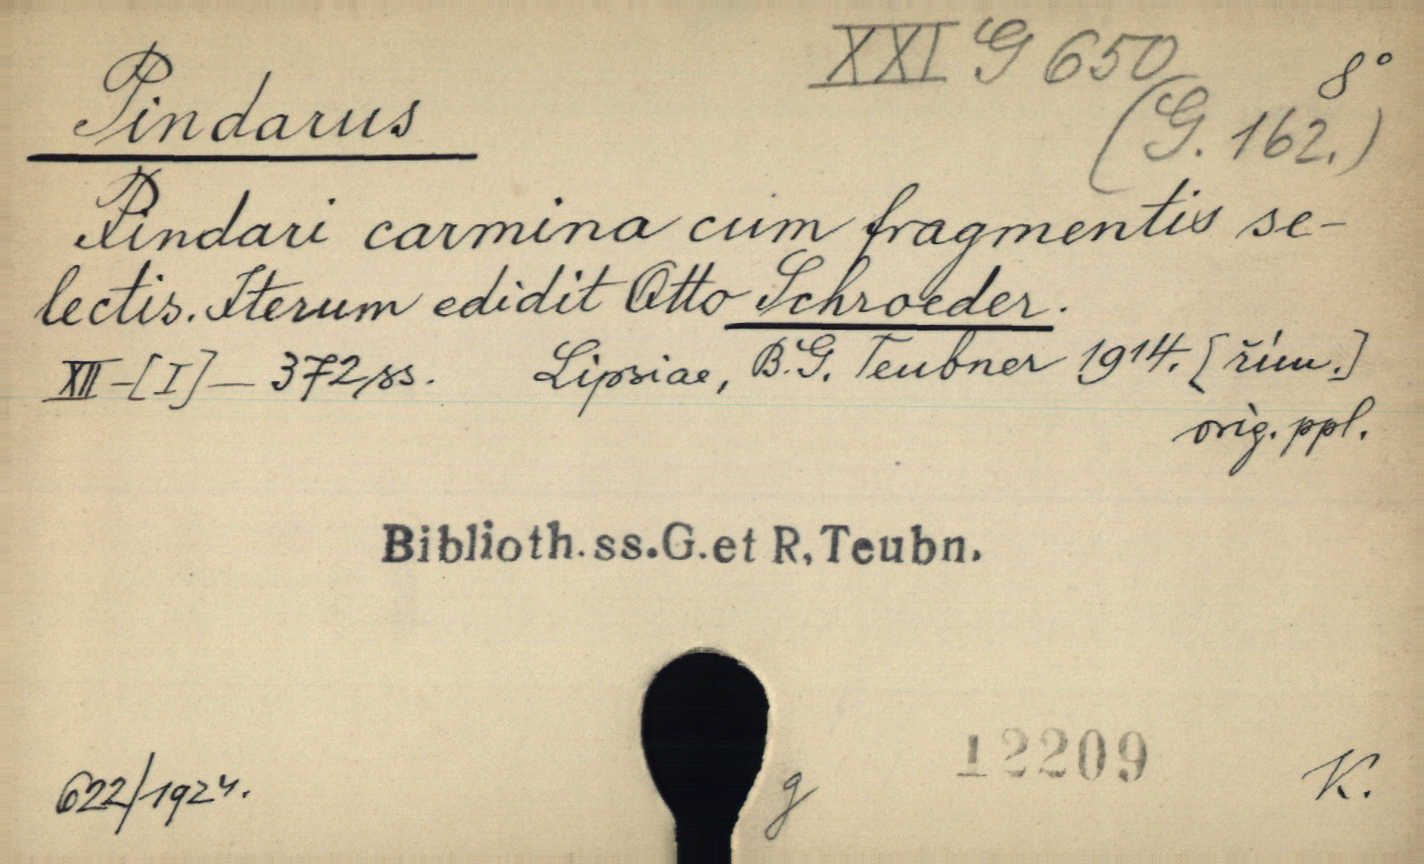 XXI G 650
8°
(G. 162.)
Pindarus
Pindari carmina cum fragmentis se-
lectis. Iterum edidit Otto Schroeder.
XII-[I]-372 ss. Lipsiae, B. G. Teubner 1914. [řím.]
orig. ppl.
Biblioth. ss. G. et R. Teubn.
12209
622/1924.
g
K.